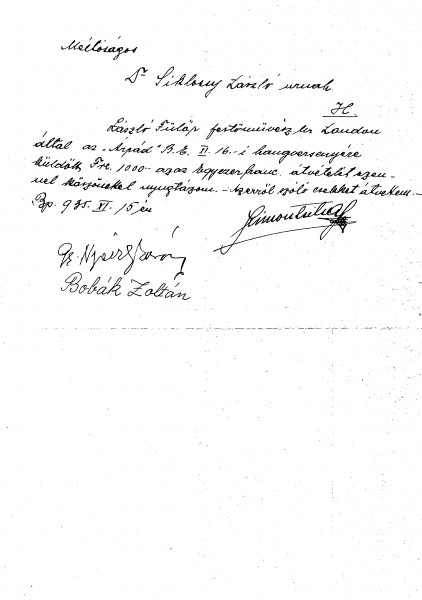 Méltóságos
Dr Siklóssy László urnak
H.
László Fülöp festőművész úr London
által az "Árpád" B.E. II. 16.-i hangversenyére
küldött Frc. 1000.- azaz egyezer franc. átvételét ezen-
nel köszönettel nyugtázom. - Az erről szóló csekket átvettem. -
Bp. 935. XI. 15 én
Bobák Zoltán